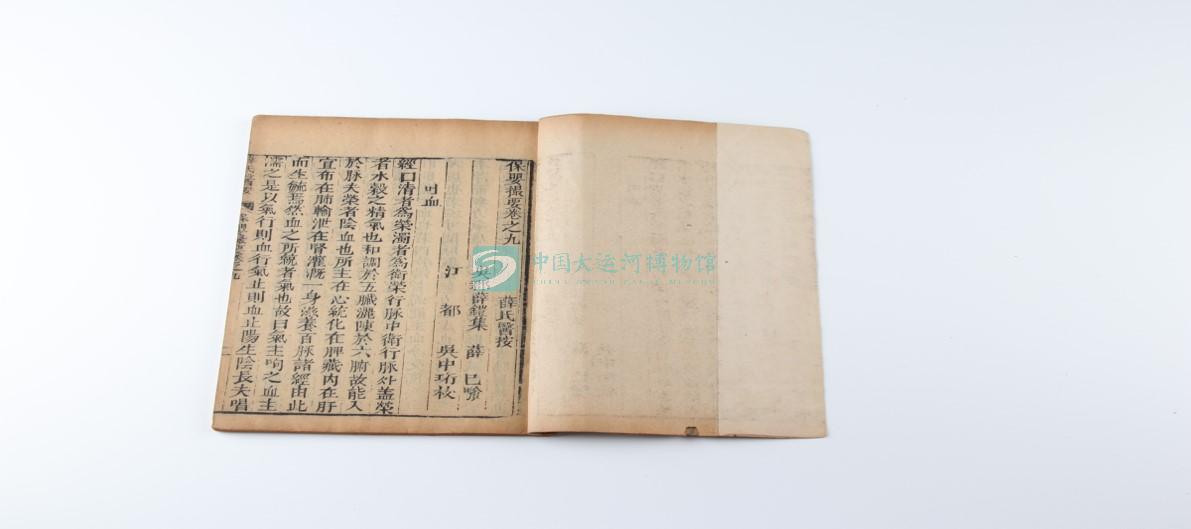 保嬰撮要卷之九
薛氏醫按
吳郡薛鎧集 薛己
江都 吳中珩校
吐血
經曰清者為榮濁者為衛榮行脉中衛行脉外葢榮
者水穀之精氣也和調於五臟灑陳於六腑故能入
於脉夫榮者陰血也所主在心統化在脾藏內在肝
宣布在肺輸泄在腎灌溉一身滋養百脉諸經由此
而生毓焉然血之所統者氣也故曰氣主呴之血主
濡之是以氣行則血行氣止則血止陽生陰長夫唱
中国大运河博物馆
CHINA GRAND CANAL MUSEUM